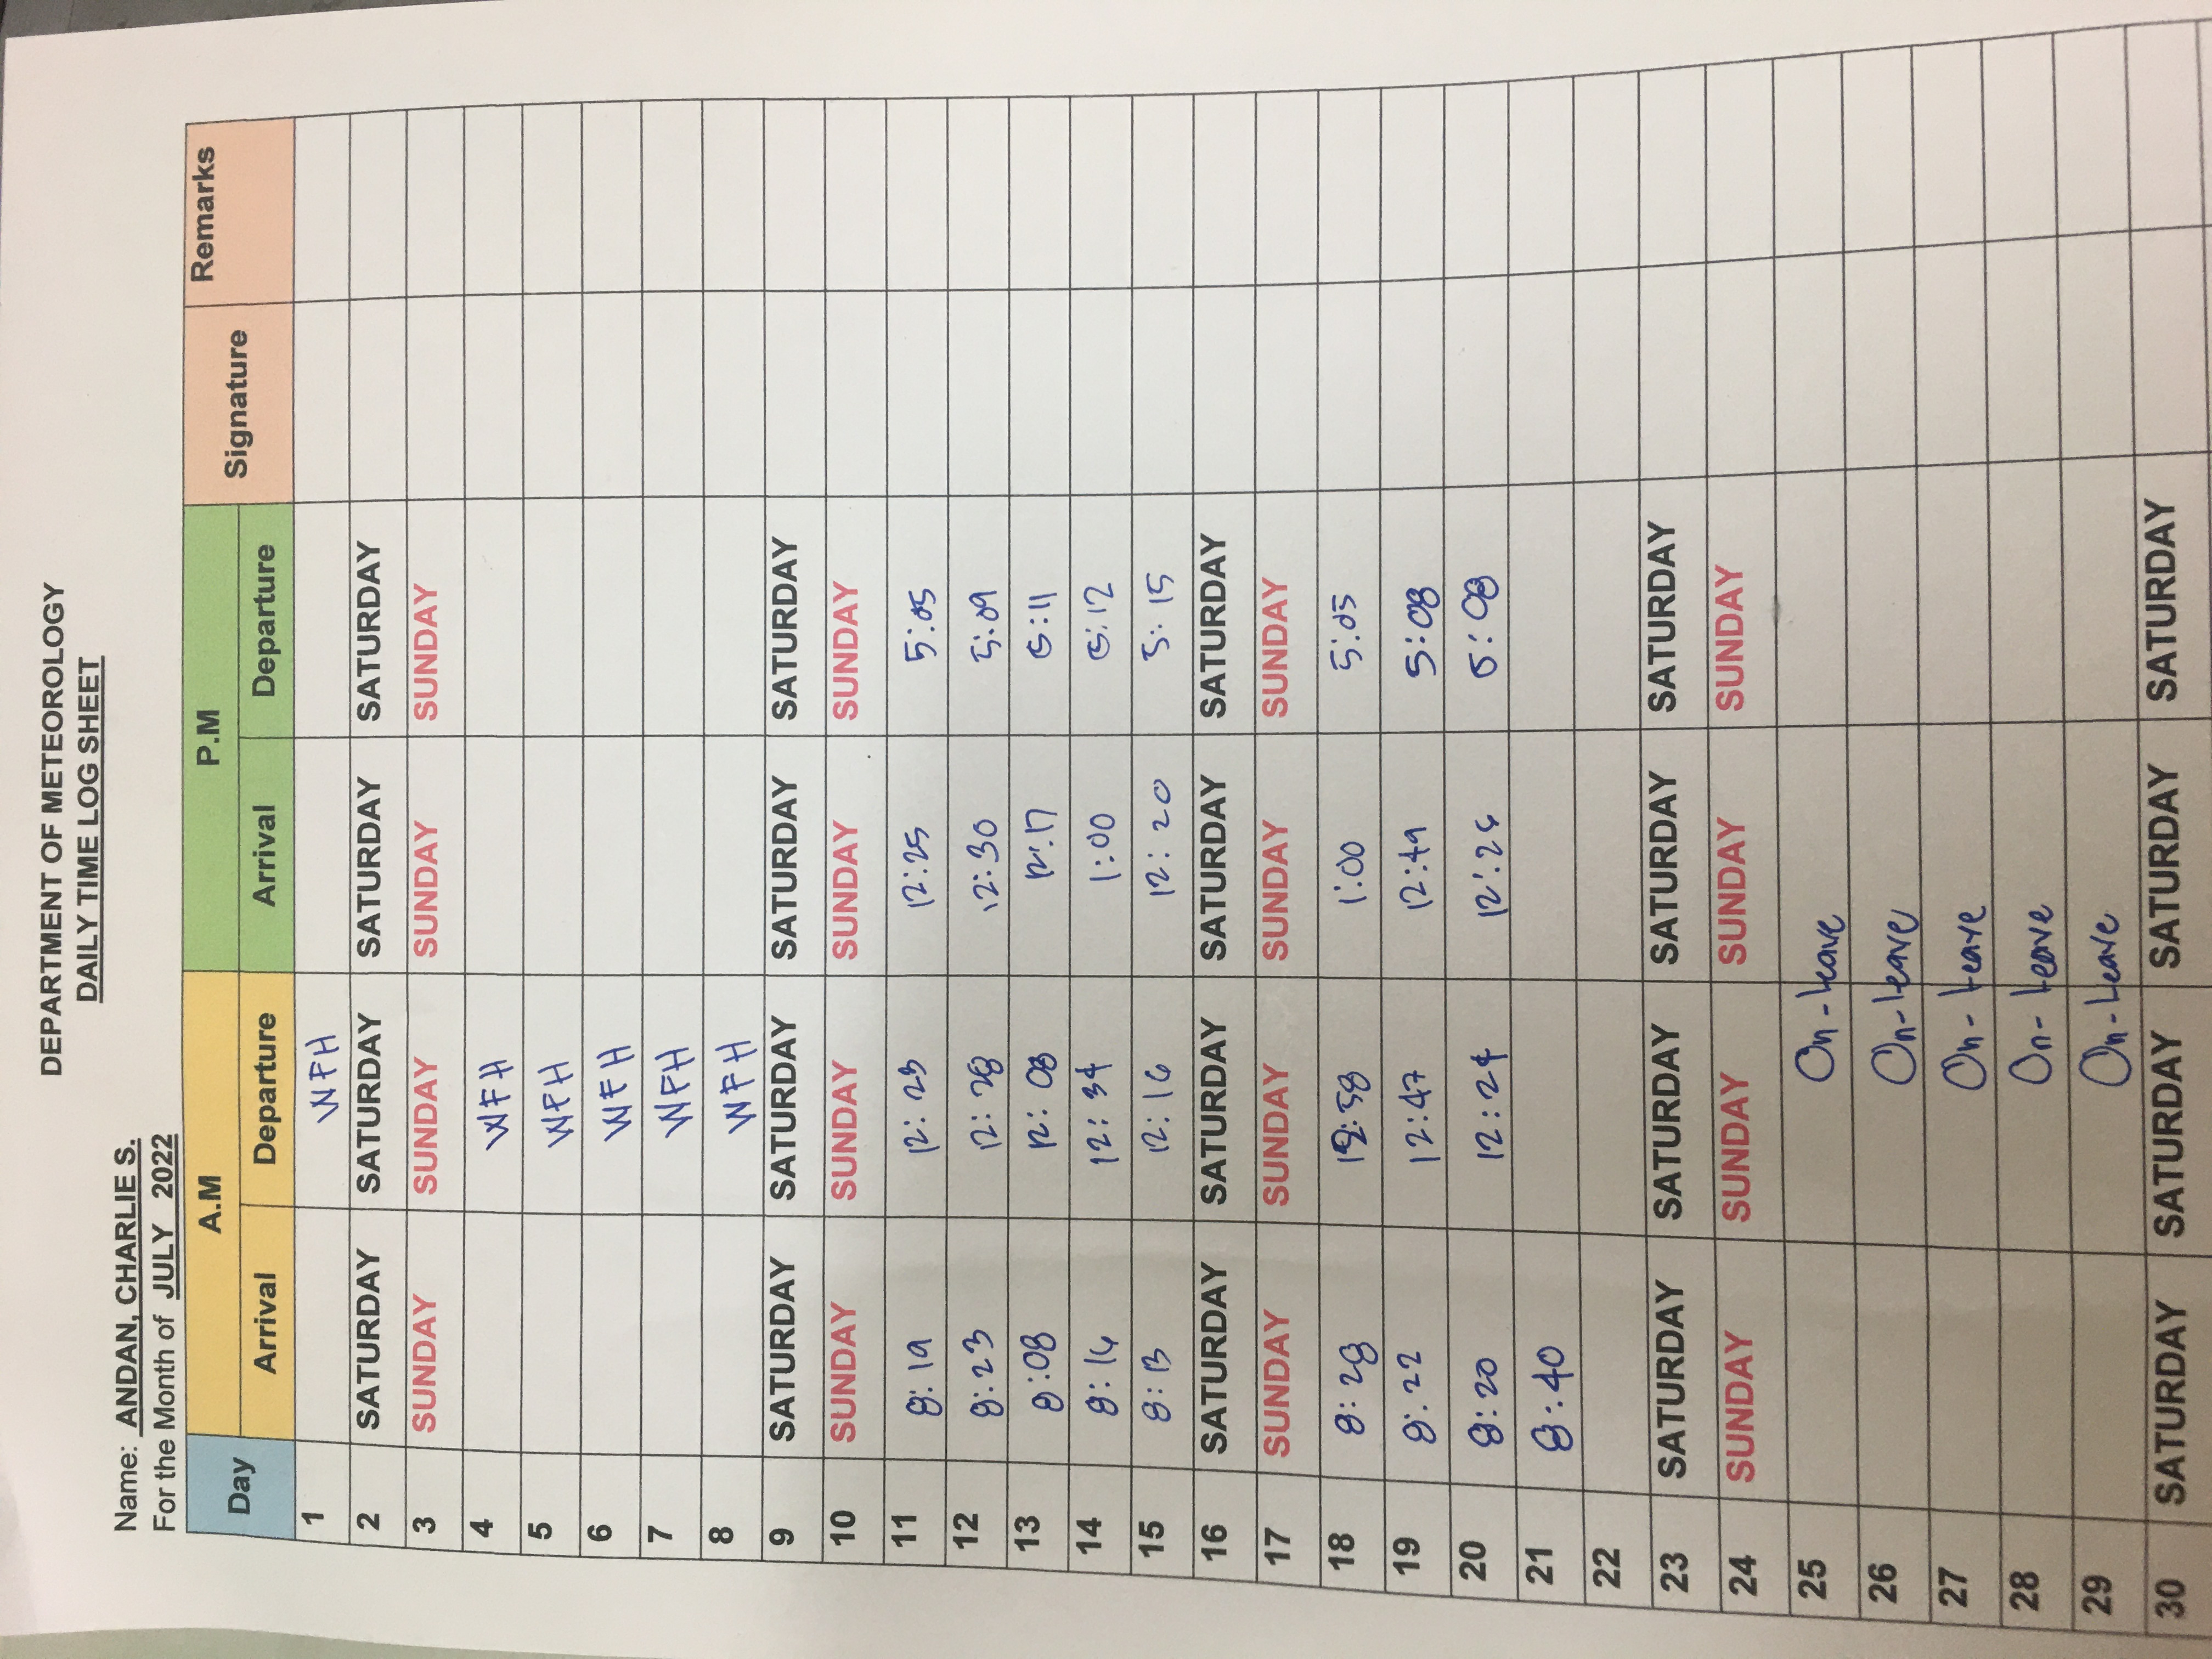 DEPARTMENT OF METEOROLOGY
DAILY TIME LOG SHEET
Name: ANDAN, CHARLIE S.
For the Month of JULY 2022
Day A.M P.M Signature Remarks
Arrival Departure Arrival Departure
1 WFH
2 SATURDAY SATURDAY SATURDAY SATURDAY
3 SUNDAY SUNDAY SUNDAY SUNDAY
4 WFH
5 WFH
6 WFH
7 WFH
8 WFH
9 SATURDAY SATURDAY SATURDAY SATURDAY
10 SUNDAY SUNDAY SUNDAY SUNDAY
11 8:19 12:23 12:25 5:05
12 8:23 12:28 12:30 5:09
13 8:08 12:08 12:17 5:11
14 8:16 12:34 1:00 5:12
15 8:13 12:16 12:20 5:15
16 SATURDAY SATURDAY SATURDAY SATURDAY
17 SUNDAY SUNDAY SUNDAY SUNDAY
18 8:28 12:58 1:00 5:05
19 8:22 12:47 12:49 5:08
20 8:20 12:24 5:08
21 8:40
22
23 SATURDAY SATURDAY SATURDAY SATURDAY
24 SUNDAY SUNDAY SUNDAY SUNDAY
25 On-leave
26 On-leave
27 On-leave
28 On-leave
29 On-leave
30 SATURDAY SATURDAY SATURDAY SATURDAY